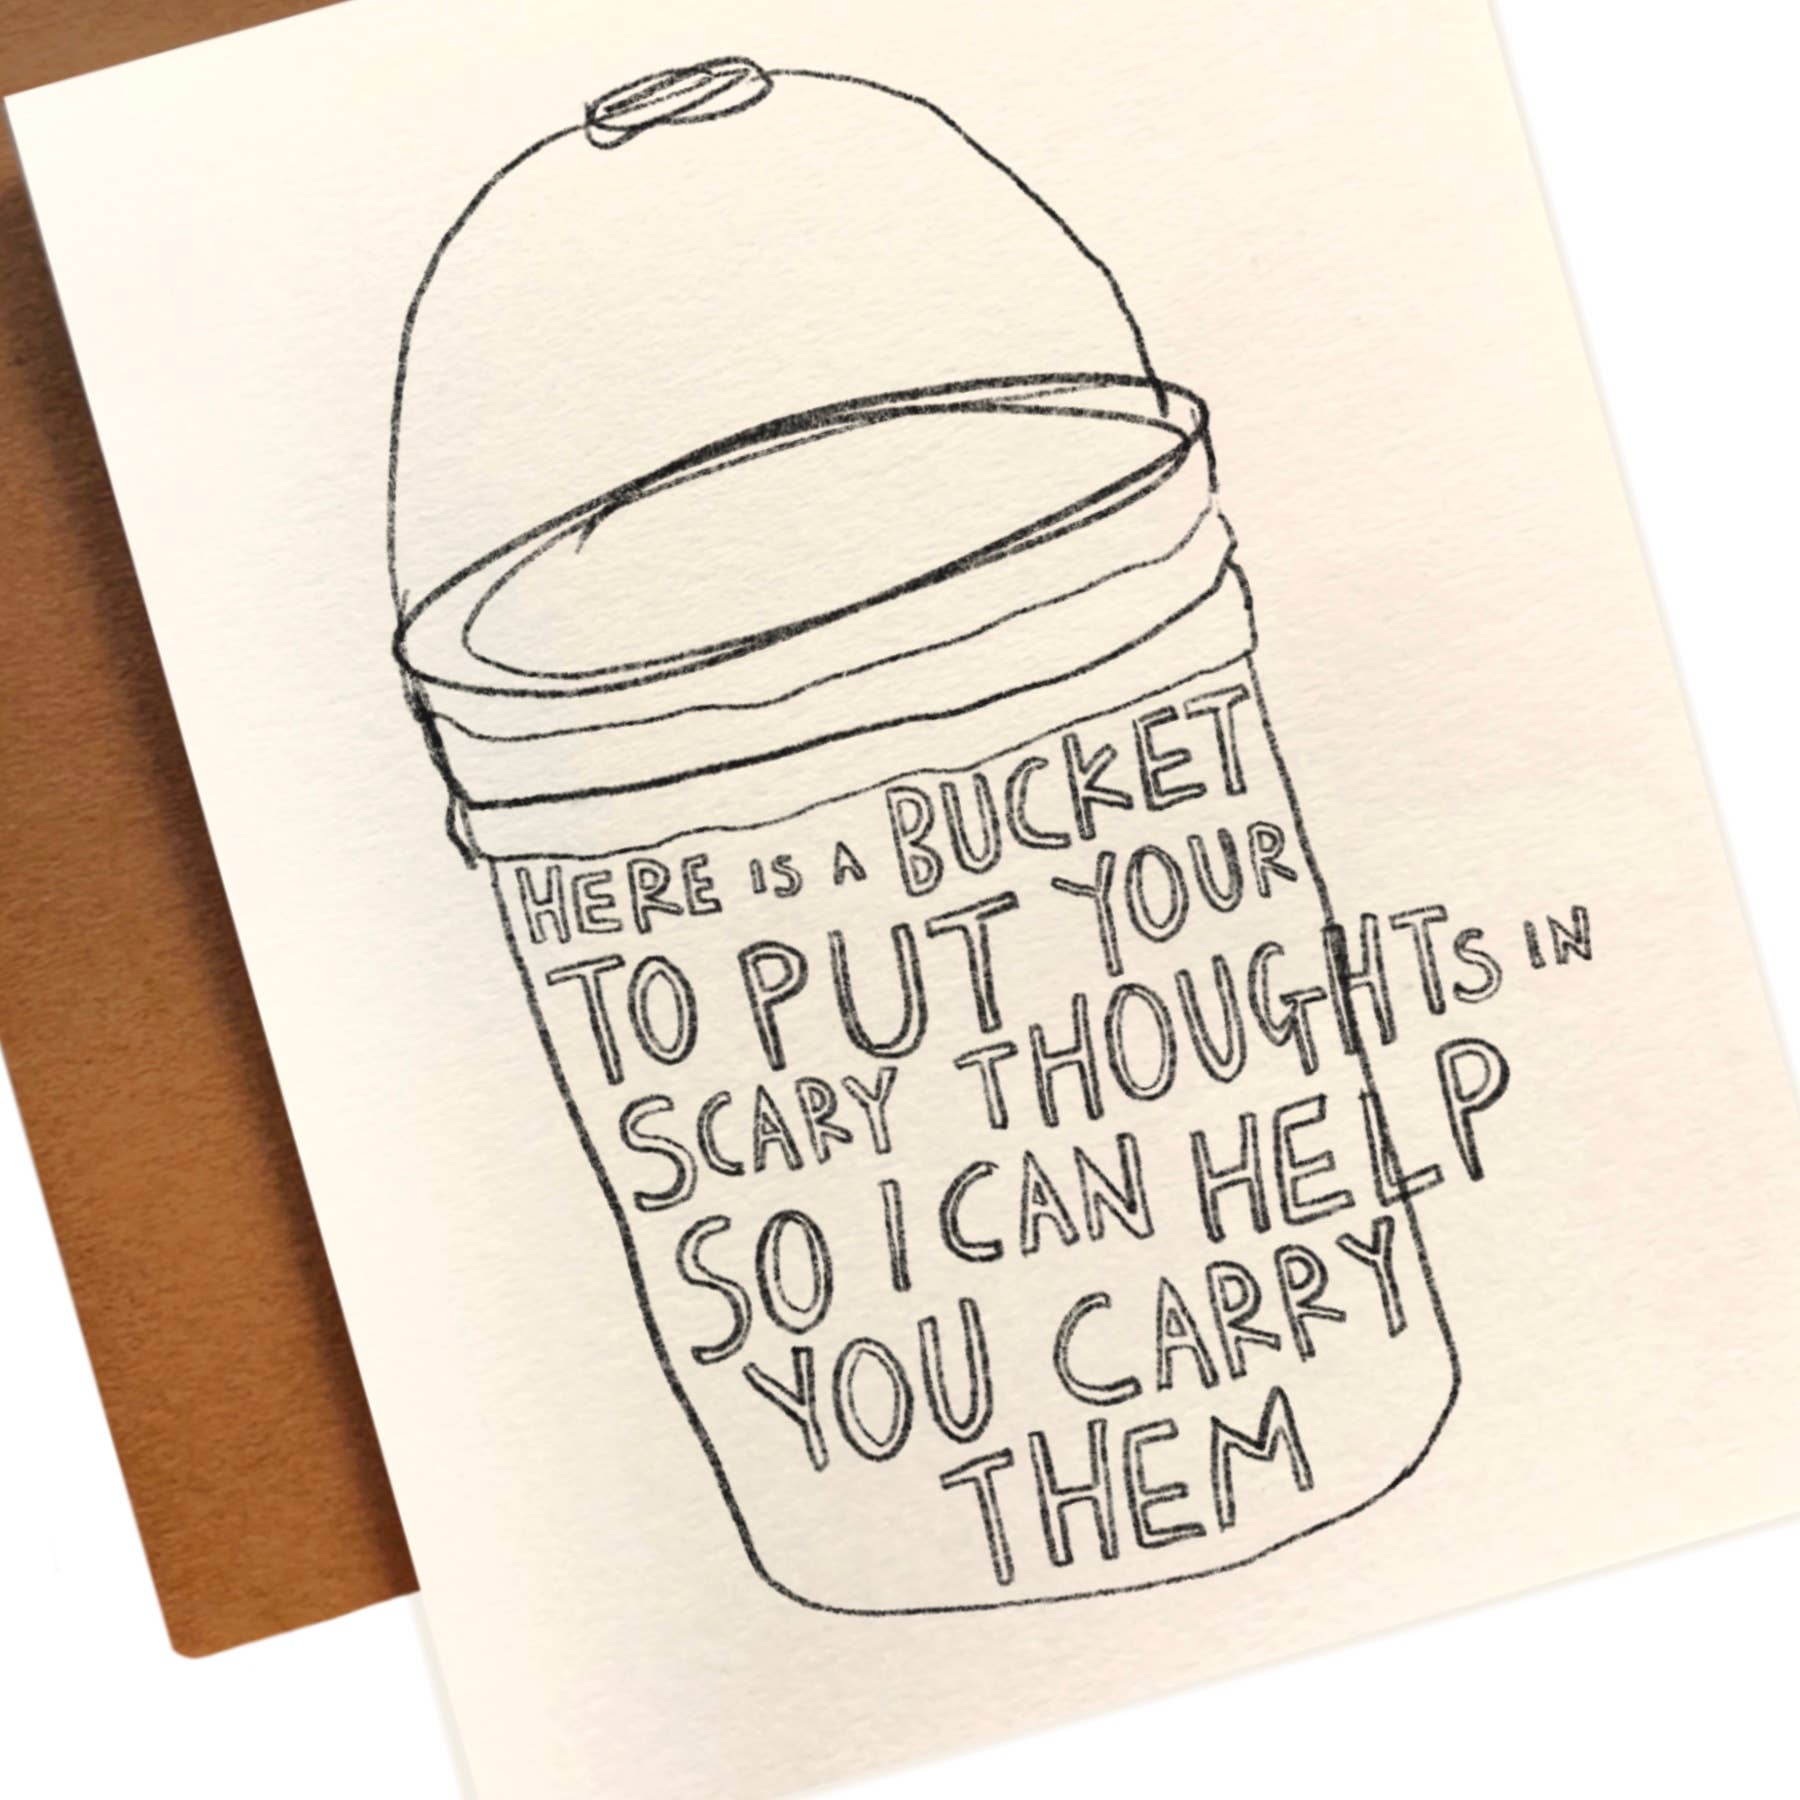 HERE IS A BUCKET
TO PUT YOUR
SCARY THOUGHTS IN
SO I CAN HELP
YOU CARRY
THEM